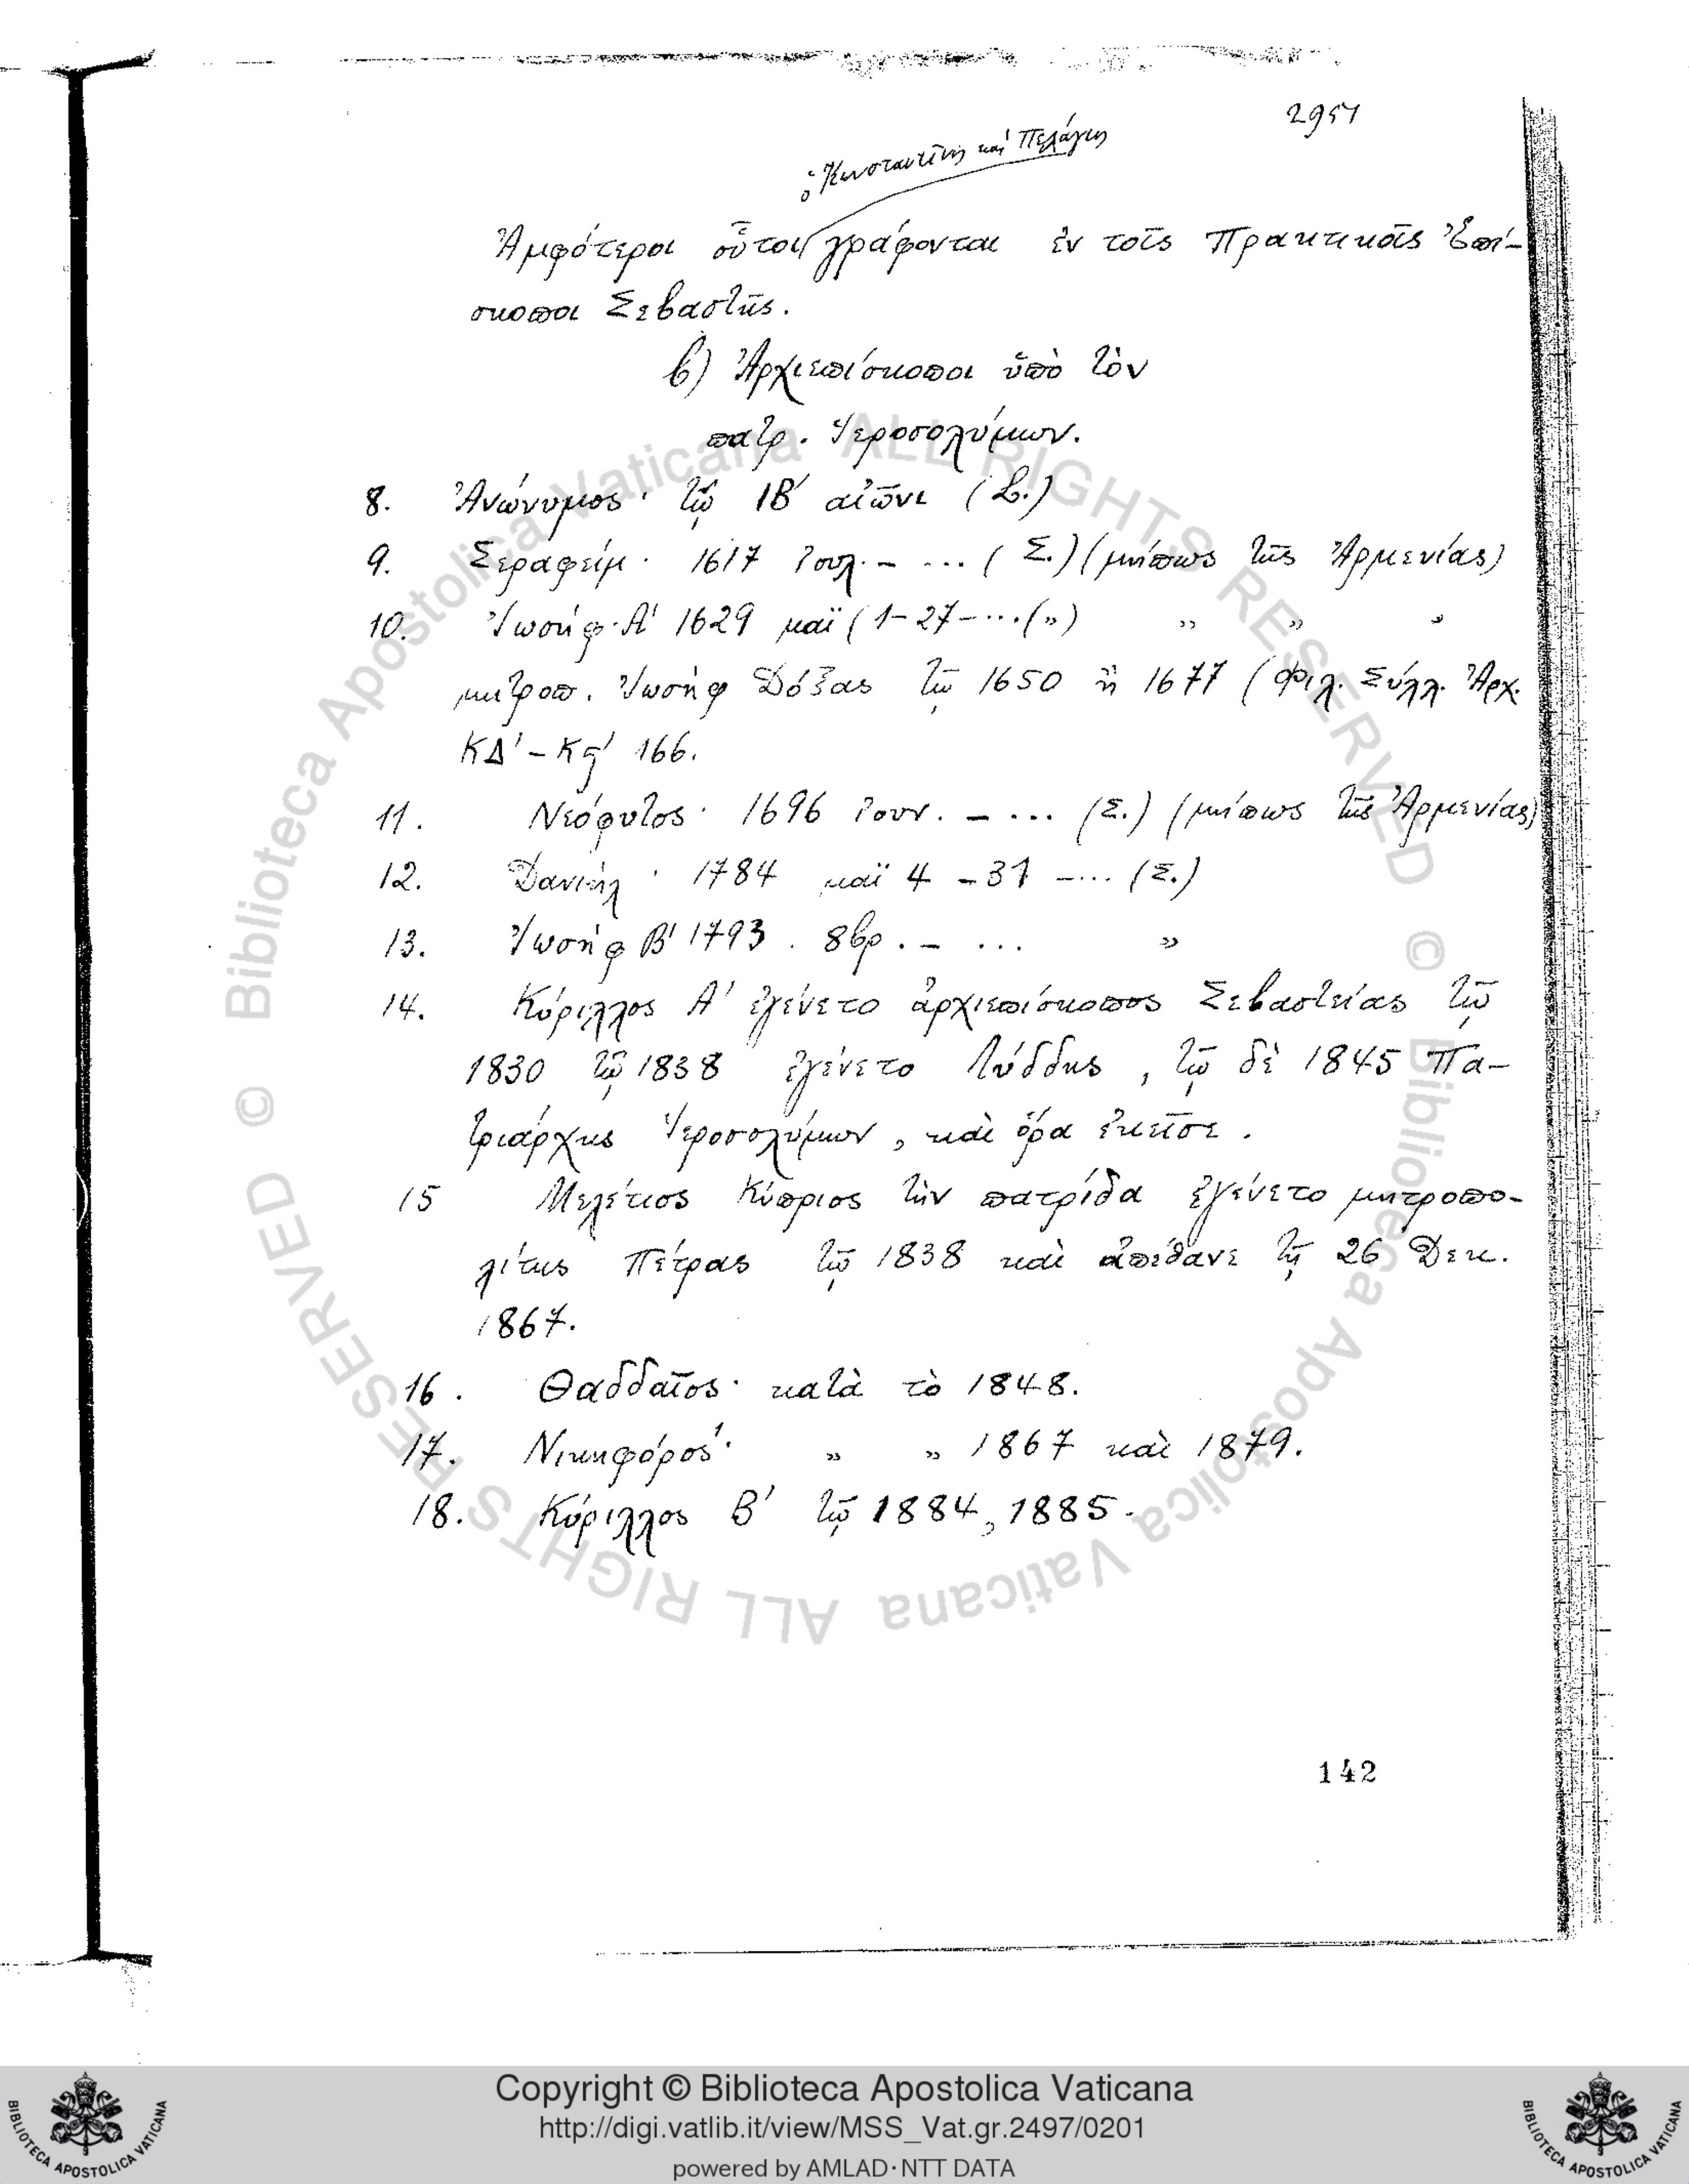 2951
ὁ Κωνσταντῖνος καὶ Πελάγιος
Ἀμφότεροι οὗτοι γράφονται ἐν τοῖς Πρακτικοῖς Ἐπί-
σκοποι Σεβαστῆς.
β) Ἀρχιεπίσκοποι ὑπὸ τὸν
πατρ. Ἱεροσολύμων.
8. Ἀνώνυμος· τῷ ΙΒ΄ αἰῶνι (L.)
9. Σεραφείμ· 1617 Ἰουλ. – ... (Σ.) (μήπως τῆς Ἀρμενίας)
10. Ἰωσήφ Α΄ 1629 μαϊ (1-27-...(») » » »
μητροπ. Ἰωσὴφ Δόξας τῷ 1650 ἢ 1677 (Φιλ. Σύλλ. Ἀρχ.
ΚΔ΄ – Κϛ΄ 166.
11. Νεόφυτος· 1696 Ἰουν. – ... (Σ.) (μήπως τῆς Ἀρμενίας)
12. Δανιήλ· 1784 μαϊ 4 – 31 –... (Σ.)
13. Ἰωσὴφ Β΄ 1793. 8βρ. – ... »
14. Κύριλλος Α΄ ἐγένετο ἀρχιεπίσκοπος Σεβαστείας τῷ
1830 τῷ 1838 ἐγένετο Λύδδης, τῷ δὲ 1845 Πα-
τριάρχης Ἱεροσολύμων, καὶ ὅρα ἐκεῖσε.
15 Μελέτιος Κύπριος τὴν πατρίδα ἐγένετο μητροπο-
λίτης Πέτρας τῷ 1838 καὶ ἀπέθανε τῇ 26 Δεκ.
1867.
16. Θαδδαῖος· κατὰ τὸ 1848.
17. Νικηφόρος· » » 1867 καὶ 1879.
18. Κύριλλος Β΄ τῷ 1884, 1885.
142
© Biblioteca Apostolica Vaticana ALL RIGHTS RESERVED © Biblioteca Apostolica Vaticana ALL RIGHTS RESERVED
BIBLIOTECA APOSTOLICA VATICANA
Copyright © Biblioteca Apostolica Vaticana
http://digi.vatlib.it/view/MSS_Vat.gr.2497/0201
powered by AMLAD·NTT DATA
BIBLIOTECA APOSTOLICA VATICANA